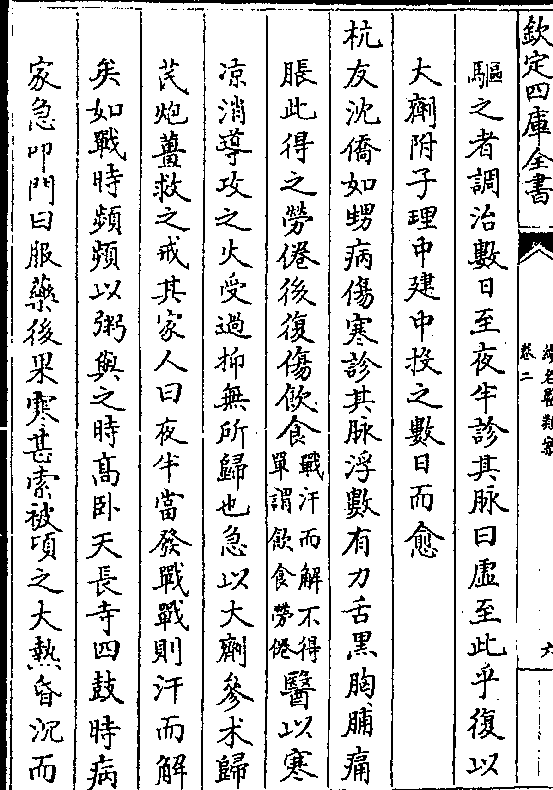 欽定四庫全書
卷二
六
驅之者調治數日至夜半診其脉曰虛至此乎復以
大劑附子理中建中投之數日而愈
杭友沈僑如甥病傷寒診其脉浮數有力舌黑胸脯痛
脹此得之勞倦後復傷飲食戰汗而解不得單謂飲食勞倦醫以寒
凉消導攻之火受過抑無所歸也急以大劑參术歸
芪炮薑救之戒其家人曰夜半當發戰戰則汗而解
矣如戰時頻頻以粥與之時髙卧天長寺四鼓時病
家急叩門曰服藥後果寒甚索被頃之大熱昏沉而